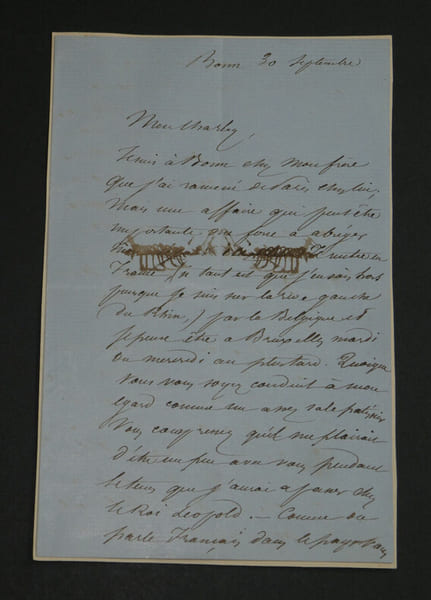 Bonn 30 Septembre
Mon Charley,
Je suis à Bonn chez mon frère
que j'ai ramené de Paris chez lui,
Mais une affaire qui peut être
importante me force à abréger
Je rentre en
France (en tant est que j'en sois hors
puisque je suis sur la rive gauche
du Rhin,) par la Belgique et
je pense être à Bruxelles mardi
ou mercredi au plus tard. Quoique
vous vous soyez conduit à mon
égard comme un assez sale
vous comprenez qu'il me plairait
d'être un peu avec vous pendant
le tems que j'aurai à passer chez
le Roi Léopold — Comme on
parle Français dans le pays